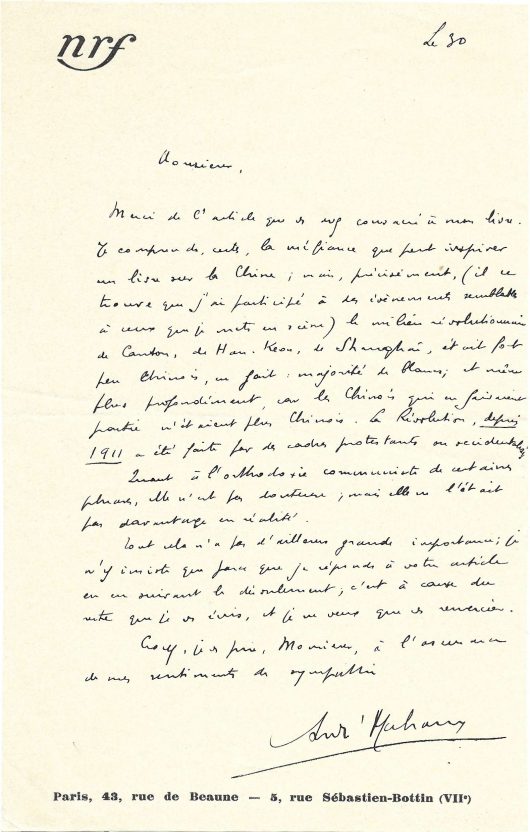 nrf
Le 30
Monsieur,
Merci de l'article que vs avez consacré à mon livre.
Je comprends, certes, la méfiance que peut inspirer
un livre sur la Chine ; mais, précisément, (il se
trouve que j'ai participé à des événements semblables
à ceux que je mets en scène) le milieu révolutionnaire
de Canton, de Han-Keou, de Shanghaï, était fort
peu chinois, en fait : majorité de blancs ; et même
plus profondément, car les Chinois qui en faisaient
partie n'étaient plus Chinois. La Révolution, depuis
1911 a été faite par des cadres protestants ou occidentalisés
Quant à l'orthodoxie communiste de certaines
phrases, elle n'est pas douteuse ; mais elle ne l'était
pas davantage en réalité.
Tout cela n'a pas d'ailleurs grande importance ; je
n'y insiste que parce que je réponds à votre article
en en suivant le déroulement ; c'est à cause du
reste que je vs écris, et je ne veux que vs remercier.
Croyez, je vs prie, Monsieur, à l'assurance
de mes sentiments de sympathie
André Malraux
Paris, 43, rue de Beaune — 5, rue Sébastien-Bottin (VIIe)